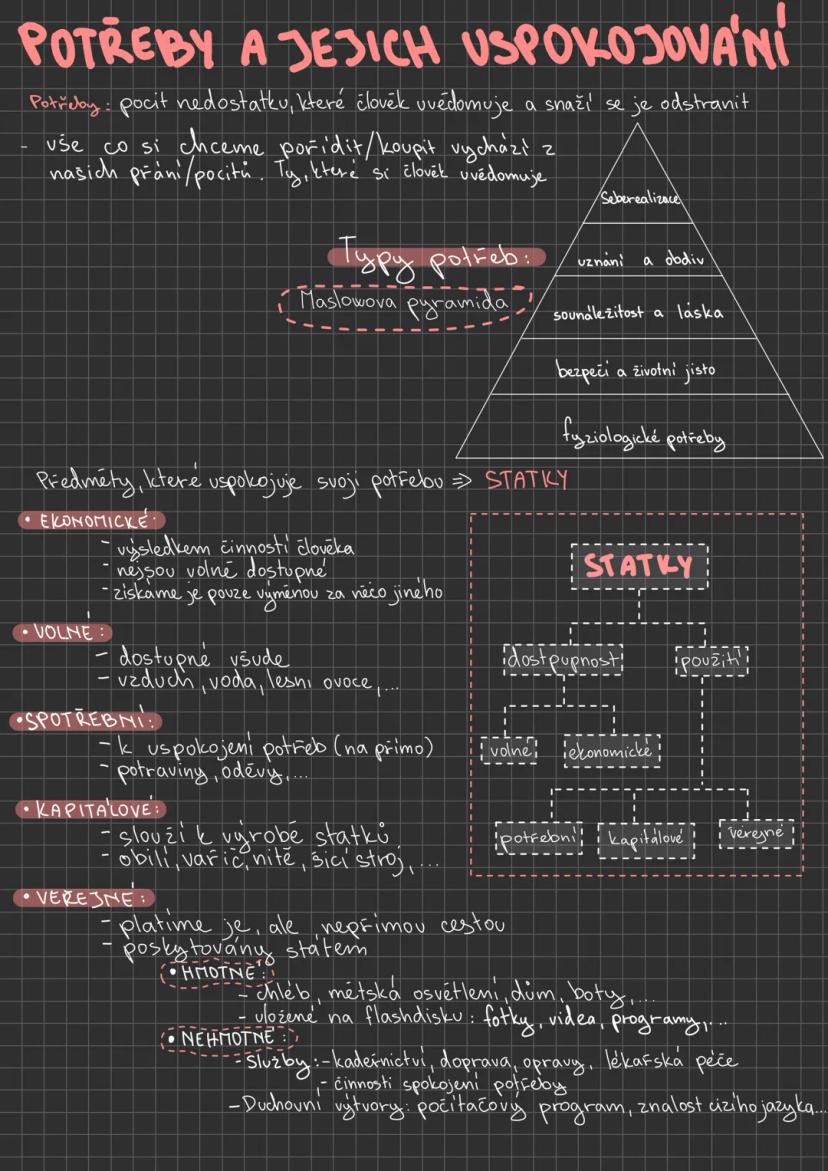 POTŘEBY A JEJICH USPOKOJOVÁNÍ
Potřeby: pocit nedostatku, které člověk uvědomuje a snaží se je odstranit
- vše co si chceme pořídit/koupit vychází z
našich přání/pocitů. Ty, které si člověk uvědomuje
Typy potřeb:
Maslowova pyramida
Seberealizace
uznání a obdiv
sounáležitost a láska
bezpečí a životní jisto
fyziologické potřeby
Předměty, které uspokojuje svoji potřebou => STATKY
• EKONOMICKÉ:
- výsledkem činností člověka
- nejsou volně dostupné
- získáme je pouze výměnou za něco jiného
• VOLNÉ:
- dostupné všude
- vzduch, voda, lesní ovoce,...
• SPOTŘEBNÍ:
- k uspokojení potřeb (na přímo)
- potraviny, oděvy,...
• KAPITÁLOVÉ:
- slouží k výrobě statků
- obilí, vařič, nitě, šicí stroj,...
• VEŘEJNÉ:
- platíme je, ale nepřímou cestou
- poskytovány státem
• HMOTNÉ:
- chléb, městská osvětlení, dům, boty,...
- uložené na flashdisku: fotky, videa, programy,...
• NEHMOTNÉ:
- Služby: - kadeřnictví, doprava, opravy, lékařská péče
- činnosti spokojení potřeby
- Duchovní výtvory: počítačový program, znalost cizího jazyka...
STATKY
dostpupnost
použití
volné
ekonomické
potřební
kapitálové
veřejné